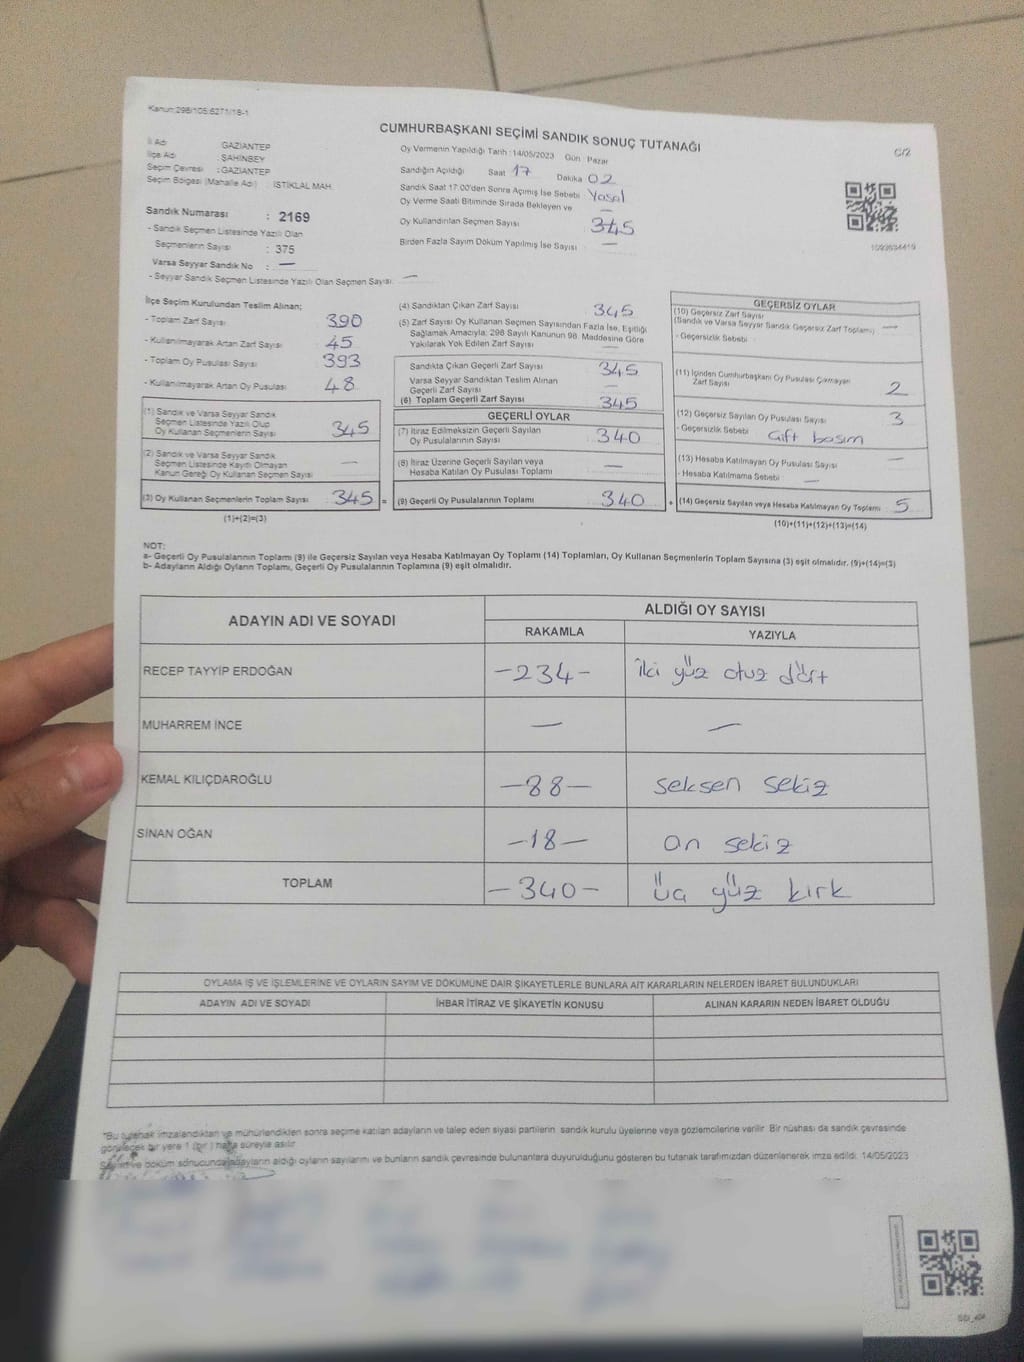 Kanun:298/105;6271/18-1
CUMHURBAŞKANI SEÇİMİ SANDIK SONUÇ TUTANAĞI
C/2
İl Adı GAZİANTEP
İlçe Adı : ŞAHİNBEY
Seçim Çevresi : GAZİANTEP
Seçim Bölgesi (Mahalle Adı) : İSTİKLAL MAH.
Sandık Numarası : 2169
- Sandık Seçmen Listesinde Yazılı Olan
Seçmenlerin Sayısı : 375
Varsa Seyyar Sandık No : —
- Seyyar Sandık Seçmen Listesinde Yazılı Olan Seçmen Sayısı: —
Oy Vermenin Yapıldığı Tarih : 14/05/2023 Gün : Pazar
Sandığın Açıldığı Saat 17 Dakika 02
Sandık Saat 17:00'den Sonra Açımış İse Sebebi Yasal
Oy Verme Saati Bitiminde Sırada Bekleyen ve —
Oy Kullandırılan Seçmen Sayısı 345
Birden Fazla Sayım Döküm Yapılmış İse Sayısı —
1093634419
İlçe Seçim Kurulundan Teslim Alınan;
- Toplam Zarf Sayısı 390
- Kullanılmayarak Artan Zarf Sayısı 45
- Toplam Oy Pusulası Sayısı 393
- Kullanılmayarak Artan Oy Pusulası 48
(1) Sandık ve Varsa Seyyar Sandık
Seçmen Listesinde Yazılı Olup
Oy Kullanan Seçmenlerin Sayısı 345
(2) Sandık ve Varsa Seyyar Sandık
Seçmen Listesinde Kaydı Olmayan
Kanun Gereği Oy Kullanan Seçmen Sayısı —
(3) Oy Kullanan Seçmenlerin Toplam Sayısı 345 =
(1)+(2)=(3)
(4) Sandıktan Çıkan Zarf Sayısı 345
(5) Zarf Sayısı Oy Kullanan Seçmen Sayısından Fazla İse, Eşitliği
Sağlamak Amacıyla; 298 Sayılı Kanunun 98. Maddesine Göre
Yakılarak Yok Edilen Zarf Sayısı —
Sandıkta Çıkan Geçerli Zarf Sayısı 345
Varsa Seyyar Sandıktan Teslim Alınan
Geçerli Zarf Sayısı —
(6) Toplam Geçerli Zarf Sayısı 345
GEÇERLİ OYLAR
(7) İtiraz Edilmeksizin Geçerli Sayılan
Oy Pusulalarının Sayısı 340
(8) İtiraz Üzerine Geçerli Sayılan veya
Hesaba Katılan Oy Pusulası Toplamı —
(9) Geçerli Oy Pusulalarının Toplamı 340 +
GEÇERSİZ OYLAR
(10) Geçersiz Zarf Sayısı
(Sandık ve Varsa Seyyar Sandık Geçersiz Zarf Toplamı) —
- Geçersizlik Sebebi :
(11) İçinden Cumhurbaşkanı Oy Pusulası Çıkmayan
Zarf Sayısı 2
(12) Geçersiz Sayılan Oy Pusulası Sayısı 3
- Geçersizlik Sebebi Çift basım
(13) Hesaba Katılmayan Oy Pusulası Sayısı —
- Hesaba Katılmama Sebebi : —
(14) Geçersiz Sayılan veya Hesaba Katılmayan Oy Toplamı 5
(10)+(11)+(12)+(13)=(14)
NOT:
a- Geçerli Oy Pusulalarının Toplamı (9) ile Geçersiz Sayılan veya Hesaba Katılmayan Oy Toplamı (14) Toplamları, Oy Kullanan Seçmenlerin Toplam Sayısına (3) eşit olmalıdır. (9)+(14)=(3)
b- Adayların Aldığı Oyların Toplamı, Geçerli Oy Pusulalarının Toplamına (9) eşit olmalıdır.
ADAYIN ADI VE SOYADI ALDIĞI OY SAYISI
RAKAMLA YAZIYLA
RECEP TAYYİP ERDOĞAN -234- İki yüz otuz dört
MUHARREM İNCE — —
KEMAL KILIÇDAROĞLU -88- seksen sekiz
SİNAN OĞAN -18- on sekiz
TOPLAM -340- Üç yüz kırk
OYLAMA İŞ VE İŞLEMLERİNE VE OYLARIN SAYIM VE DÖKÜMÜNE DAİR ŞİKAYETLERLE BUNLARA AİT KARARLARIN NELERDEN İBARET BULUNDUKLARI
ADAYIN ADI VE SOYADI İHBAR İTİRAZ VE ŞİKAYETİN KONUSU ALINAN KARARIN NEDEN İBARET OLDUĞU
*Bu tutanak imzalandıktan ve mühürlendikten sonra seçime katılan adayların ve talep eden siyasi partilerin sandık kurulu üyelerine veya gözlemcilerine verilir. Bir nüshası da sandık çevresinde
görülecek bir yere 1 (bir) hafta süreyle asılır.
Sayım ve döküm sonucunda adayların aldığı oyların sayılarını ve bunların sandık çevresinde bulunanlara duyurulduğunu gösteren bu tutanak tarafımızdan düzenlenerek imza edildi. 14/05/2023